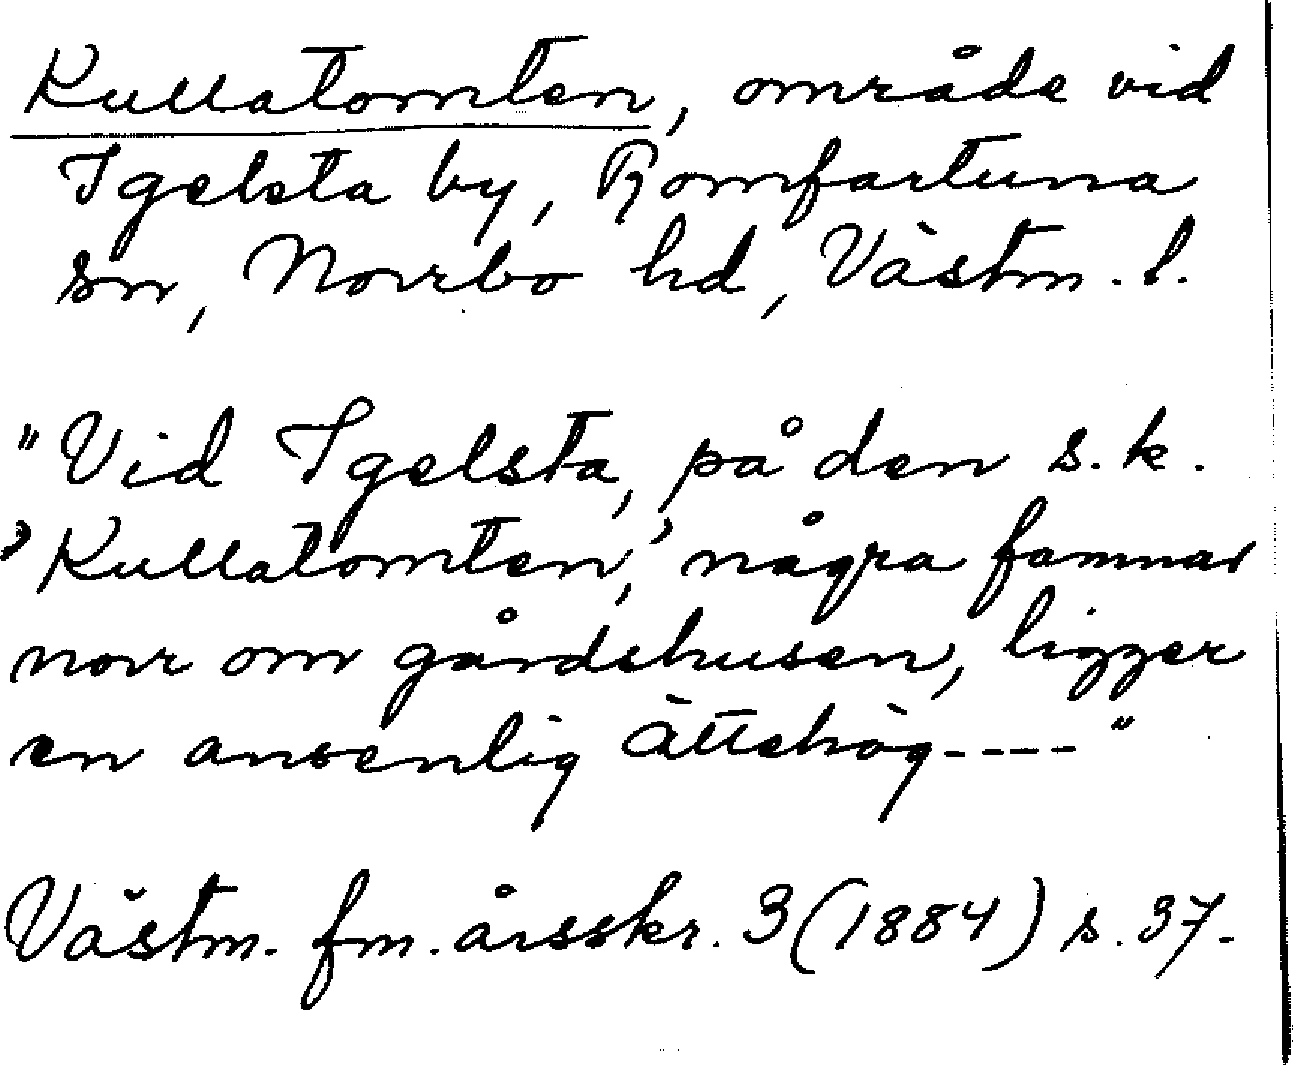 Kullatomten, område vid
Igelsta by, Romfartuna
sn, Norrbo hd, Västm. l.
"Vid Igelsta, på den s.k.
'Kullatomten,' några famnar
norr om gårdshusen, ligger
en ansenlig ättehög----"
Västm. fm. årsskr. 3 (1884) s. 37.